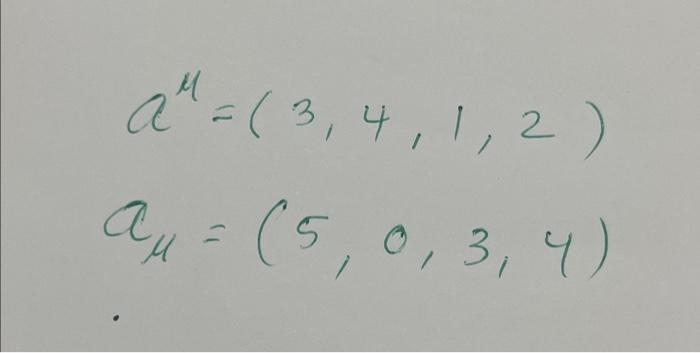 a^μ = (3, 4, 1, 2)
a_μ = (5, 0, 3, 4)